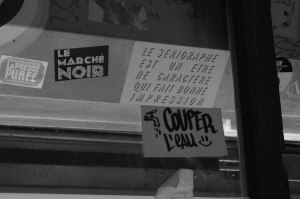 LA PRESSE
PURÉE
LE MARCHÉ
NOIR
LE SÉRIGRAPHE
EST UN ÊTRE
DE CARACTÈRE
QUI FAIT BONNE
IMPRESSION
COUPER
L'EAU